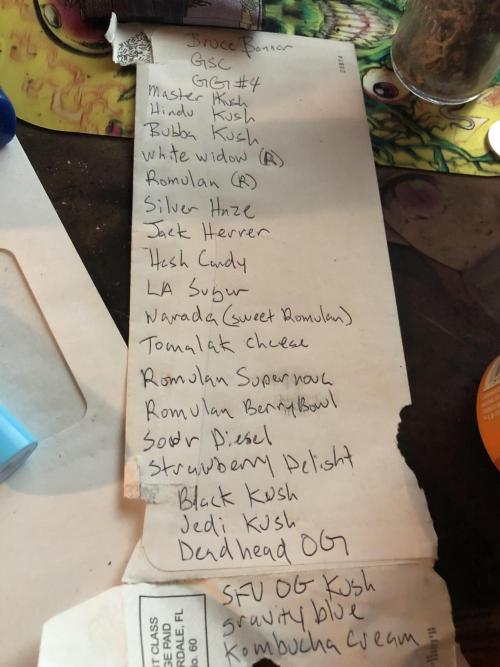 Bruce Banner
GSC
GG #4
Master Kush
Hindu Kush
Bubba Kush
white widow (R)
Romulan (R)
Silver Haze
Jack Herrer
Hash Candy
LA Sugar
Narada (sweet Romulan)
Tomalak cheese
Romulan Supernova
Romulan BerryBowl
Sour Diesel
Strawberry Delight
Black Kush
Jedi Kush
Deadhead OG
SFU OG Kush
gravity blue
Kombucha Cream
T CLASS
GE PAID
RDALE, FL
No. 60